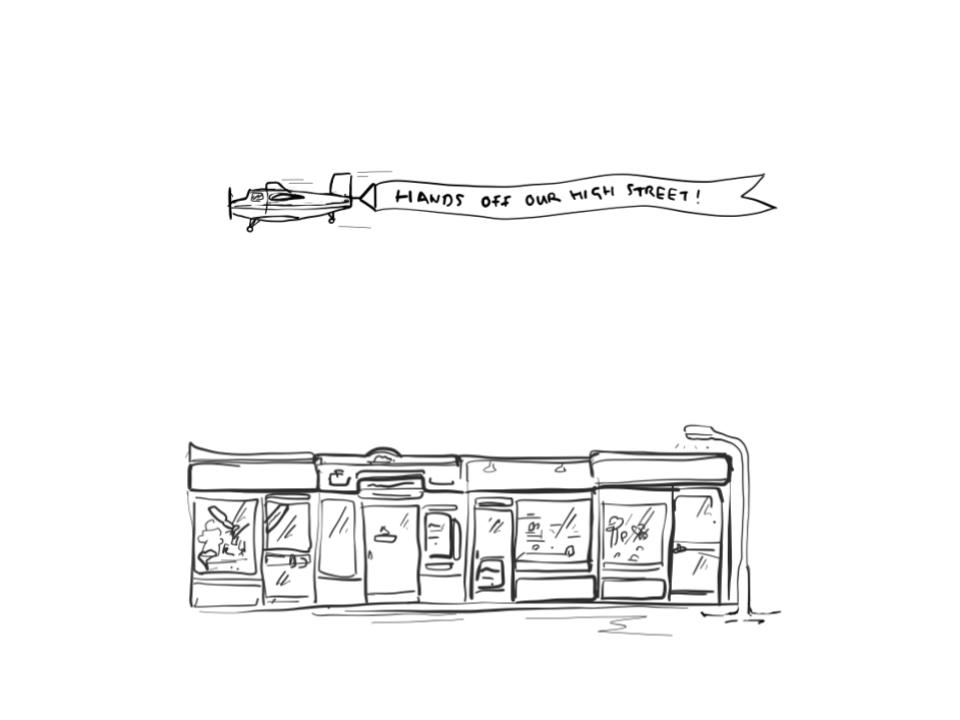 HANDS OFF OUR HIGH STREET!